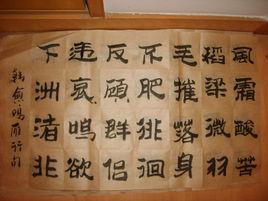 風霜酸苦
稻梁微羽
毛摧落身
不肥徘徊
反顧群侶
違哀鳴欲
下洲渚非
韓愈鳴雁行